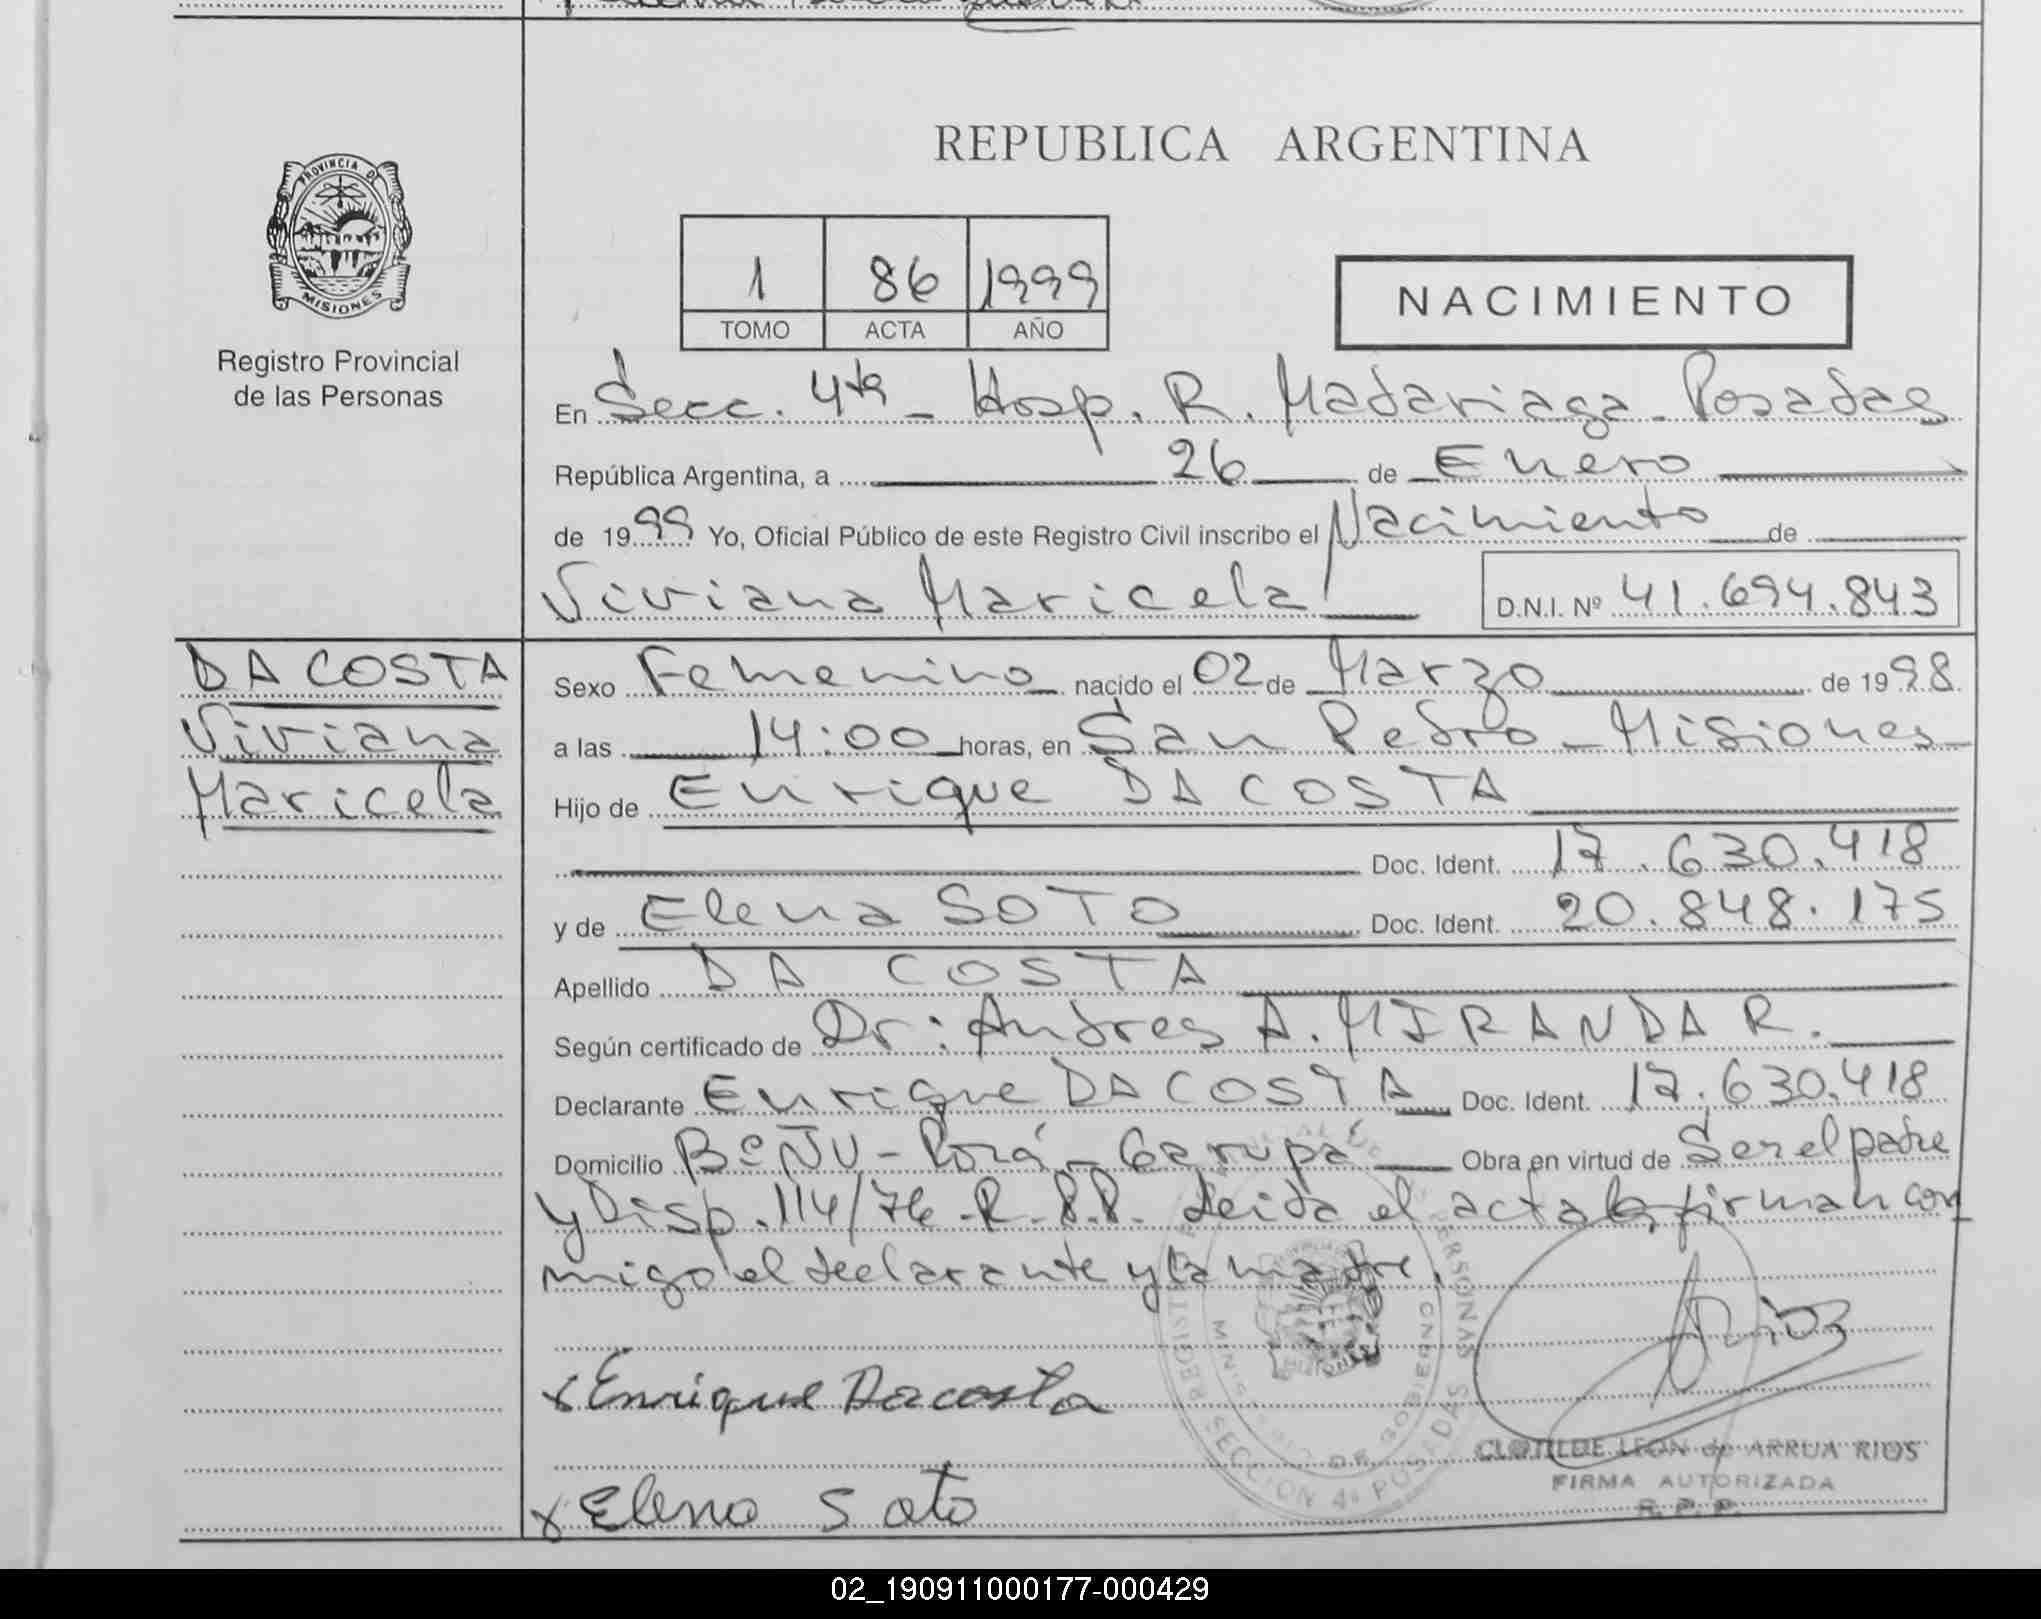 PROVINCIA DE
MISIONES
Registro Provincial
de las Personas
REPUBLICA ARGENTINA
1 86 1999
TOMO ACTA AÑO
NACIMIENTO
En Secc. 4ta - Hosp. R. Madariaga - Posadas
República Argentina, a 26 de Enero
de 1999 Yo, Oficial Público de este Registro Civil inscribo el Nacimiento de
Viviana Maricela
D.N.I. Nº 41.694.843
DA COSTA
Viviana
Maricela
Sexo Femenino nacido el 02 de Marzo de 1998
a las 14:00 horas, en San Pedro - Misiones
Hijo de Enrique DA COSTA
Doc. Ident. 17.630.418
y de Elena SOTO Doc. Ident. 20.848.175
Apellido DA COSTA
Según certificado de Dr: Andres A. MIRANDA R.
Declarante Enrique DA COSTA Doc. Ident. 17.630.418
Domicilio Bº ÑU - Porá - Garupá Obra en virtud de Ser el padre
y Disp. 114/76 - R. P. P. Leida el acta la firman con
migo el declarante y la madre.
Enrique Dacosta
Elena Soto
MINISTERIO DE GOBIERNO
SECCION 4ª POSADAS
CLOTILDE LEON de ARRUA RIOS
FIRMA AUTORIZADA
R. P. P.
02_190911000177-000429